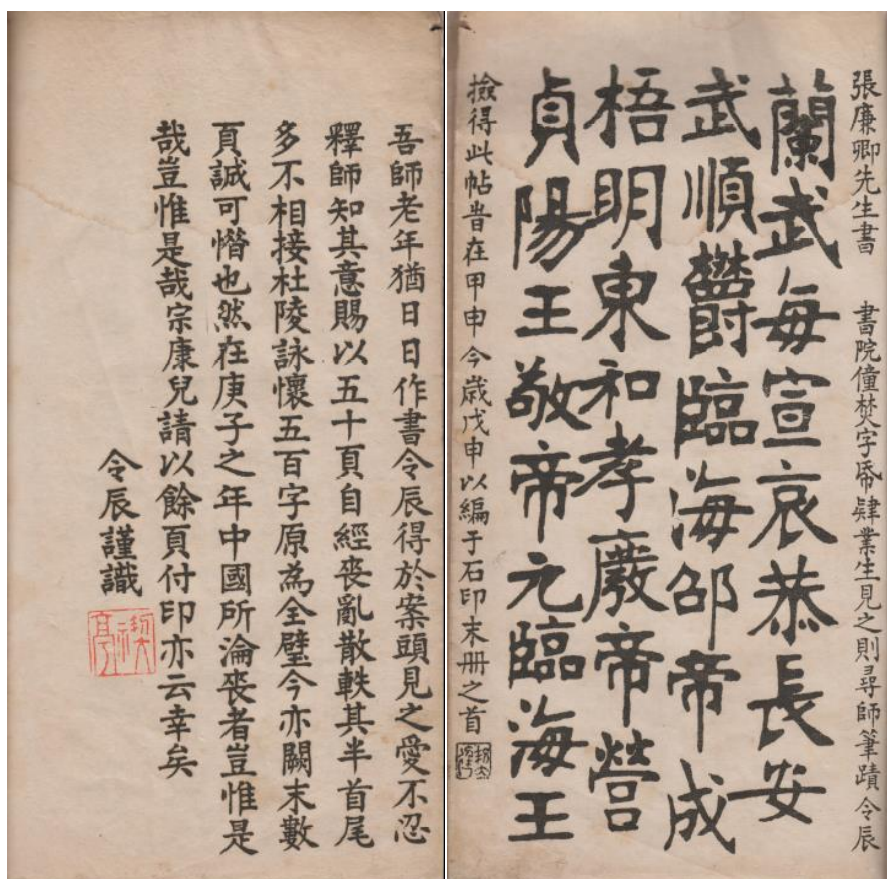 張廉卿先生書　書院僮焚字帋肄業生見之則尋師筆蹟令辰
蘭武每宣哀恭長安
武順欝臨海邵帝成
梧明東和孝廢帝營
貞陽王敬帝元臨海王
撿得此帖昔在甲申今歲戊申以編于石印末冊之首
吾師老年猶日日作書令辰得於案頭見之愛不忍
釋師知其意賜以五十頁自經喪亂散軼其半首尾
多不相接杜陵詠懷五百字原為全璧今亦闕末數
頁誠可憯也然在庚子之年中國所淪喪者豈惟是
哉豈惟是哉宗康兒請以餘頁付印亦云幸矣
令辰謹識